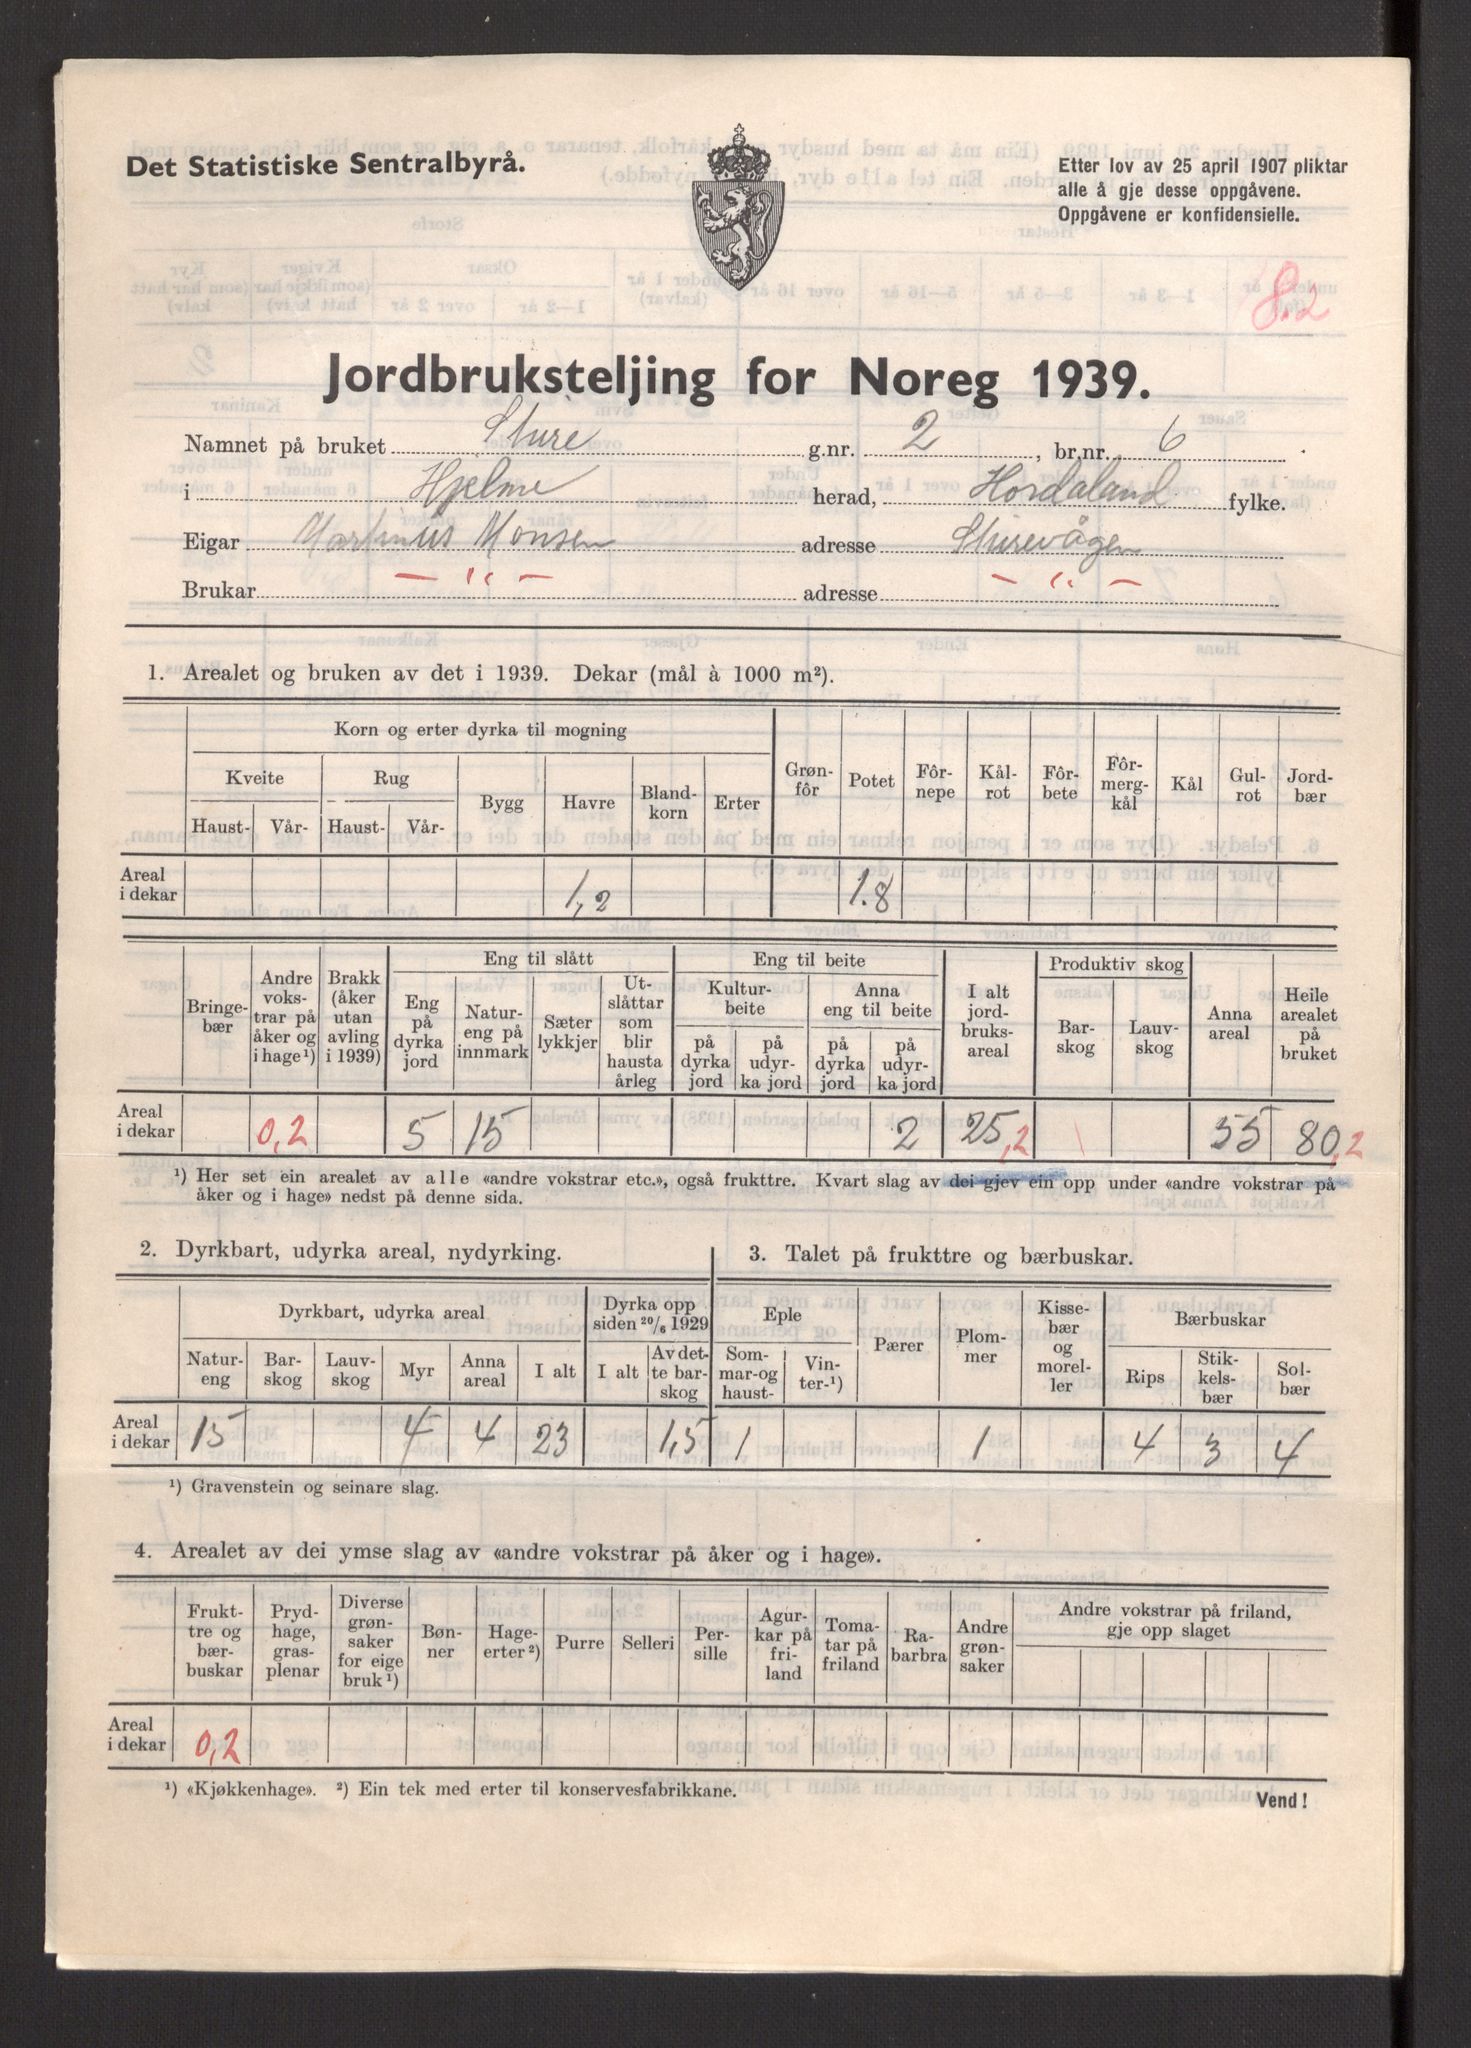 Det Statistiske Sentralbyrå.
Etter lov av 25 april 1907 pliktar
alle å gje desse oppgåvene.
Oppgåvene er konfidensielle.
8.2
Jordbruksteljing for Noreg 1939.
Namnet på bruket Sture g.nr. 2, br.nr. 6
i Hjelme herad, Hordaland fylke.
Eigar Martinus Monsen adresse Sturevågen
Brukar — " — adresse — " —
1. Arealet og bruken av det i 1939. Dekar (mål à 1000 m²).
Korn og erter dyrka til mogning
Kveite Rug
Haust- Vår- Haust- Vår- Bygg Havre Bland-korn Erter Grøn-fôr Potet Fôr-nepe Kål-rot Fôr-bete Fôr-merg-kål Kål Gul-rot Jord-bær
Areal i dekar 1,2 1.8
Eng til slått Eng til beite Produktiv skog
Kultur-beite Anna eng til beite
Bringe-bær Andre voks-trar på åker og i hage¹) Brakk (åker utan avling i 1939) Eng på dyrka jord Natur-eng på innmark Sæter lykkjer Ut-slåttar som blir hausta årleg på dyrka jord på udyr-ka jord på dyrka jord på udyr-ka jord I alt jord-bruks-areal Bar-skog Lauv-skog Anna areal Heile arealet på bruket
Areal i dekar 0,2 5 15 2 25,2 55 80,2
¹) Her set ein arealet av alle «andre vokstrar etc.», også frukttre. Kvart slag av dei gjev ein opp under «andre vokstrar på
åker og i hage» nedst på denne sida.
2. Dyrkbart, udyrka areal, nydyrking.
Dyrkbart, udyrka areal Dyrka opp siden 20/6 1929
Natur-eng Bar-skog Lauv-skog Myr Anna areal I alt I alt Av det-te bar-skog
Areal i dekar 15 4 4 23 1,5
3. Talet på frukttre og bærbuskar.
Eple Pærer Plom-mer Kisse-bær og morel-ler Bærbuskar
Som-mar- og haust- Vin-ter-¹) Rips Stik-kels-bær Sol-bær
1 1 4 3 4
¹) Gravenstein og seinare slag.
4. Arealet av dei ymse slag av «andre vokstrar på åker og i hage».
Frukt-tre og bær-buskar Pryd-hage, gras-plenar Diverse grøn-saker for eige bruk¹) Bøn-ner Hage-erter²) Purre Selleri Per-sille Agur-kar på fri-land Toma-tar på friland Ra-barbra Andre grøn-saker Andre vokstrar på friland, gje opp slaget
Areal i dekar 0,2
¹) «Kjøkkenhage». ²) Ein tek med erter til konservesfabrikkane.
Vend!